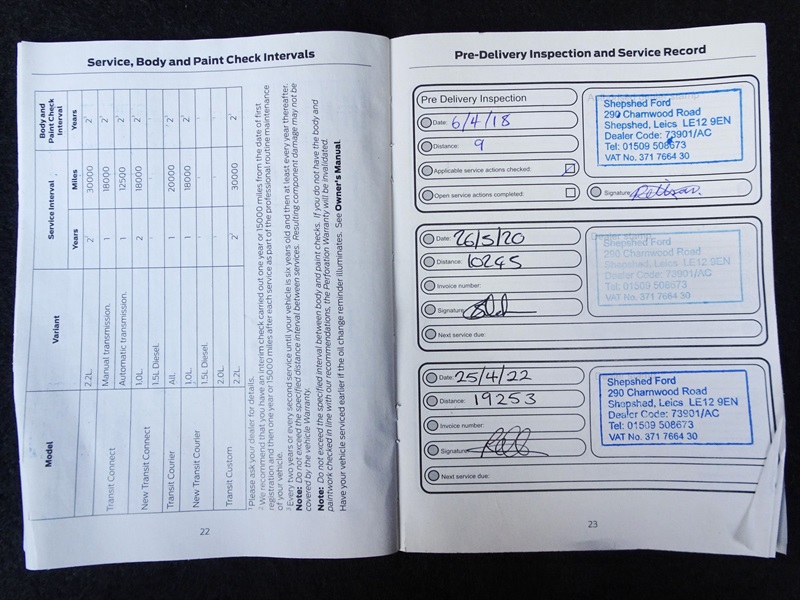 Service, Body and Paint Check Intervals
Model Variant Service Interval Body and Paint Check Interval
Years Miles Years
2.2L. 2 30000 2
Transit Connect Manual transmission. 1 18000 2
Automatic transmission. 1 12500 2
New Transit Connect 1.0L. 2 18000 2
1.5L Diesel. - - -
Transit Courier All. 1 20000 2
New Transit Courier 1.0L. 1 18000 2
1.5L Diesel. - - -
Transit Custom 2.0L. - - -
2.2L. 2 30000 2
1 Please ask your dealer for details.
2 We recommend that you have an interim check carried out one year or 15000 miles from the date of first
registration and then one year or 15000 miles after each service as part of the professional routine maintenance
of your vehicle.
3 Every two years or every second service until your vehicle is six years old and then at least every year thereafter.
Note: Do not exceed the specified distance interval between services. Resulting component damage may not be
covered by the vehicle Warranty.
Note: Do not exceed the specified interval between body and paint checks. If you do not have the body and
paintwork checked in line with our recommendations, the Perforation Warranty will be invalidated.
Have your vehicle serviced earlier if the oil change reminder illuminates. See Owner's Manual
22
Pre-Delivery Inspection and Service Record
Pre Delivery Inspection
Date: 6/4/18
Distance: 9
Applicable service actions checked:
Open service actions completed:
Shepshed Ford
290 Charnwood Road
Shepshed, Leics LE12 9EN
Dealer Code: 73901/AC
Tel: 01509 508673
VAT No. 371 7664 30
Signature
Date: 26/5/20
Distance: 10245
Invoice number:
Signature
Next service due:
Dealer stamp
Shepshed Ford
290 Charnwood Road
Shepshed, Leics LE12 9EN
Dealer Code: 73901/AC
Tel: 01509 508673
VAT No. 371 7664 30
Date: 25/4/22
Distance: 19253
Invoice number:
Signature
Next service due:
Shepshed Ford
290 Charnwood Road
Shepshed, Leics LE12 9EN
Dealer Code: 73901/AC
Tel: 01509 508673
VAT No. 371 7664 30
23